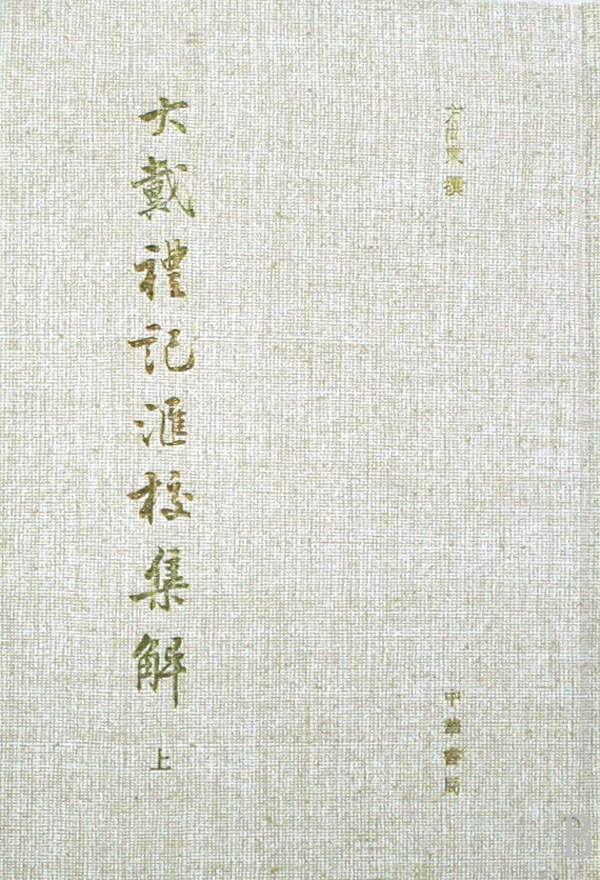 方向東 撰
大戴禮記滙校集解 上
中華書局